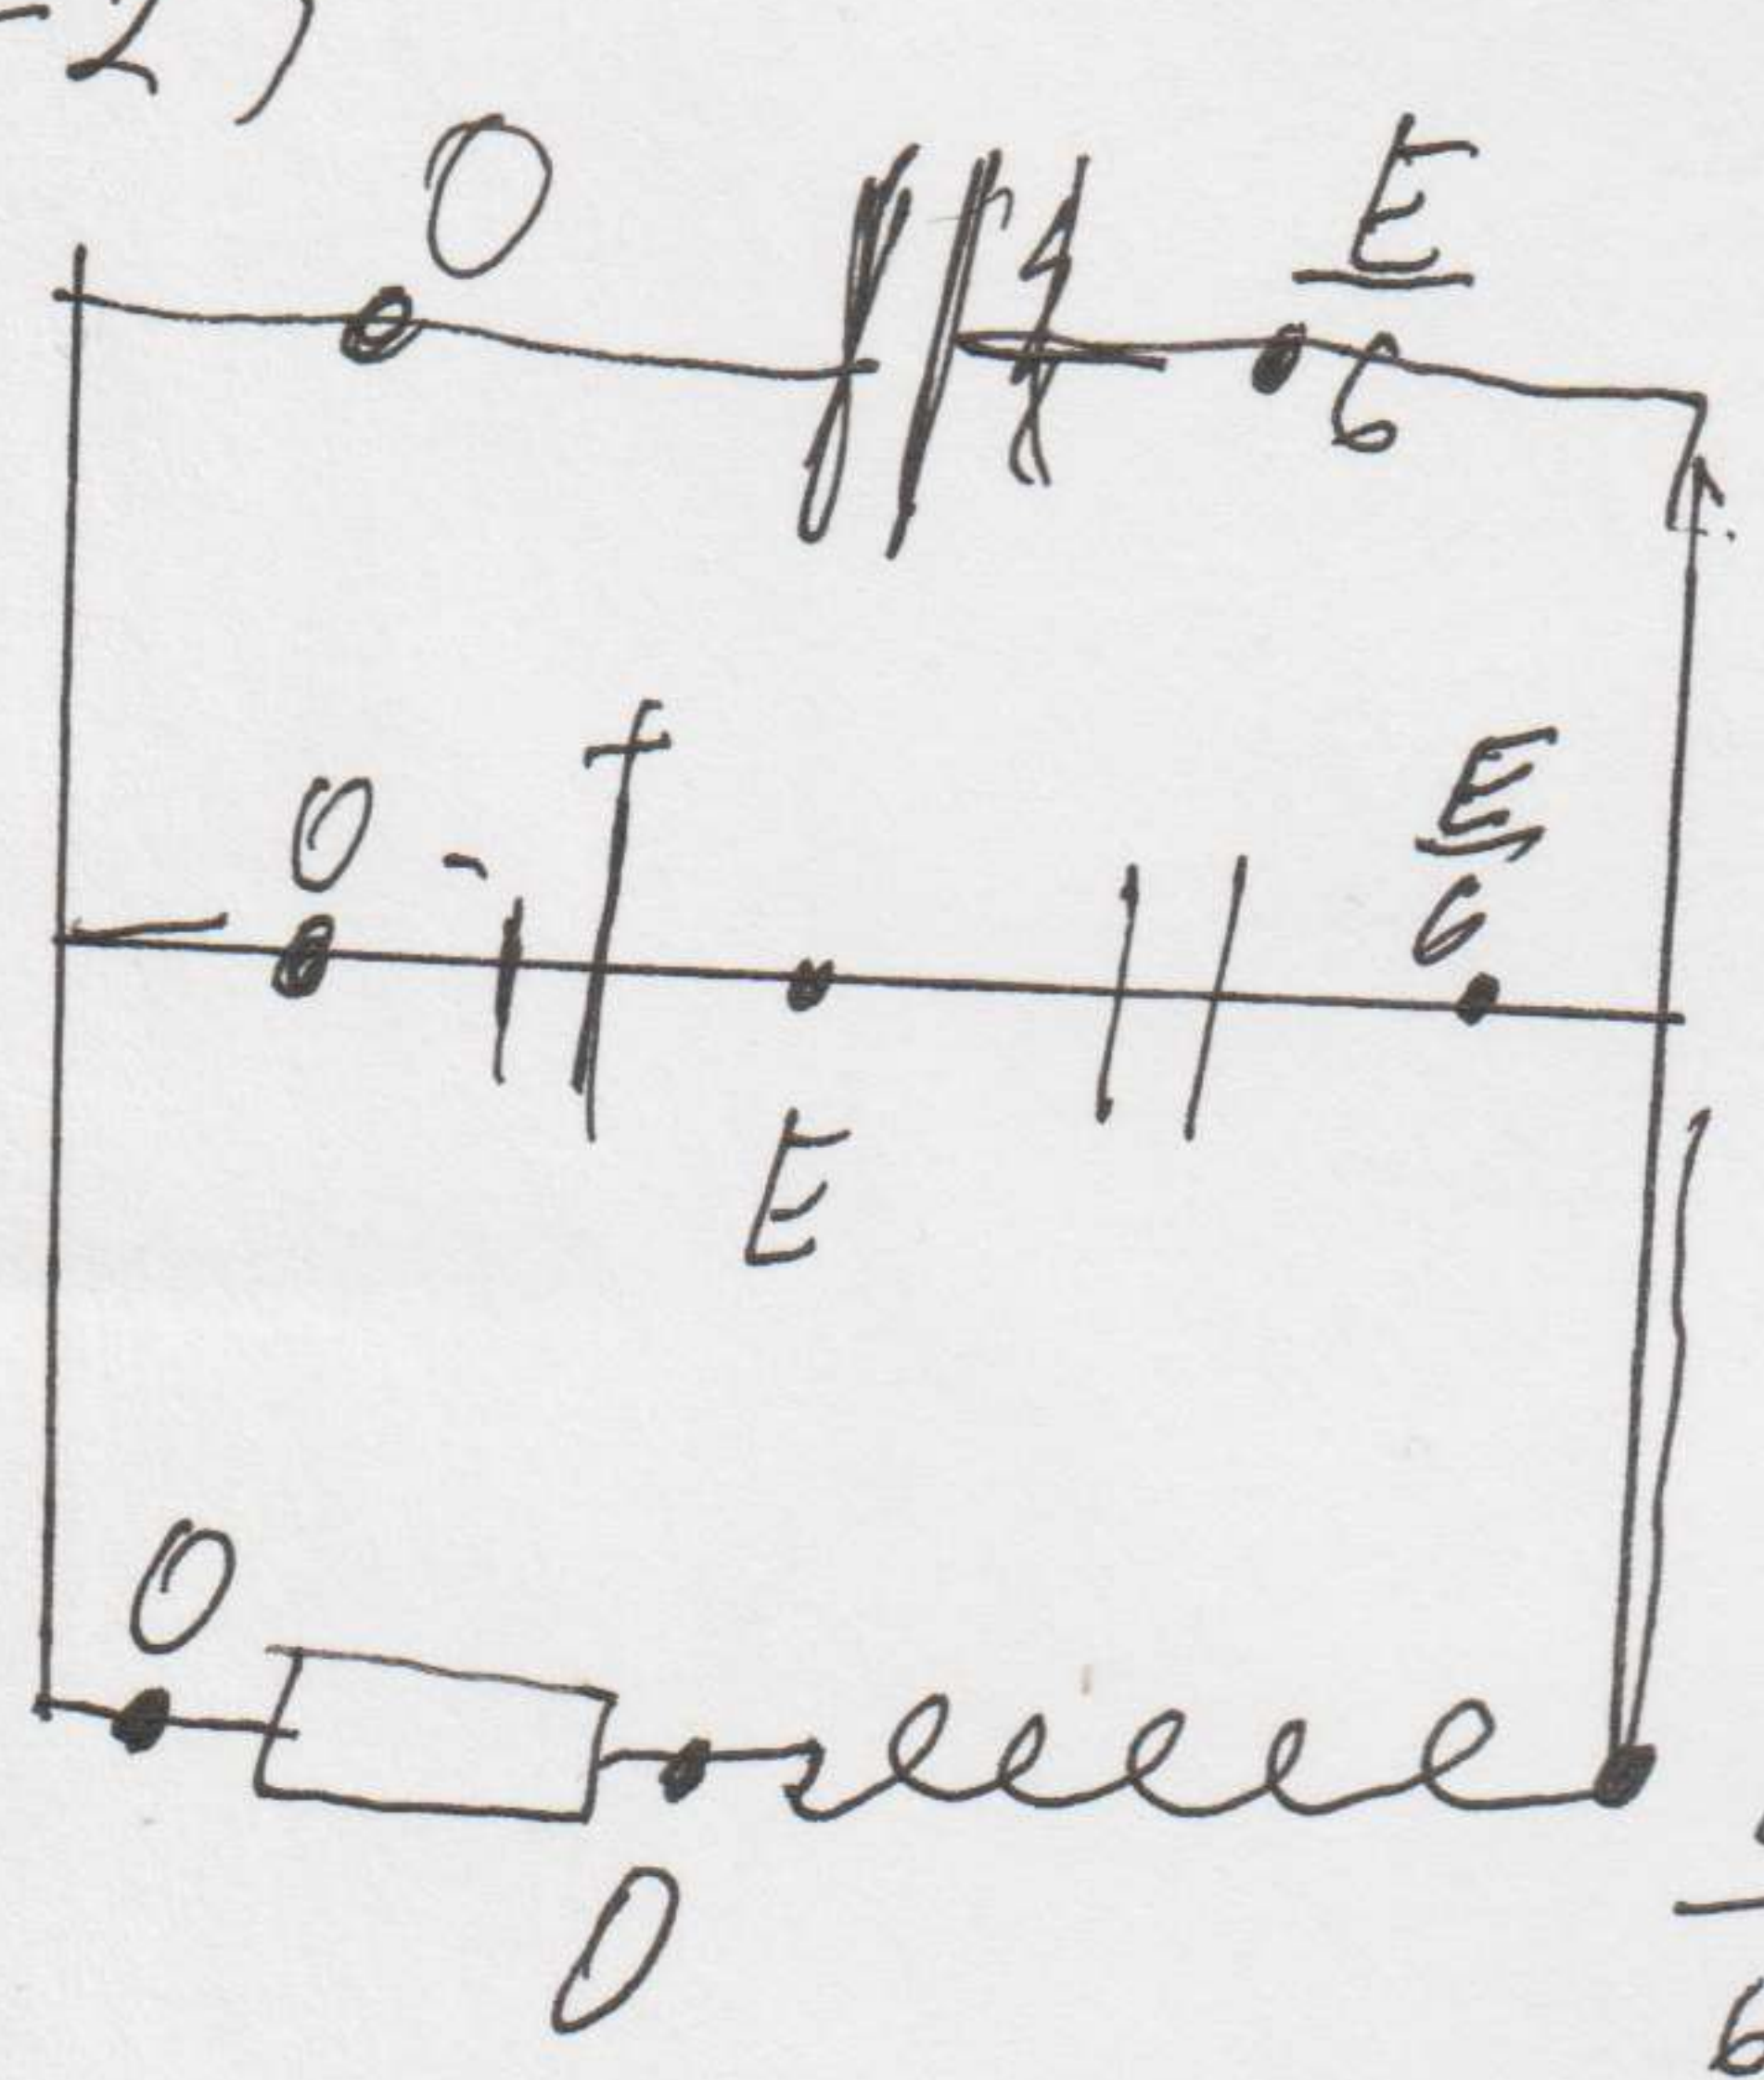 -2)
0 E/6
0 - + E/6
E
0
0
6